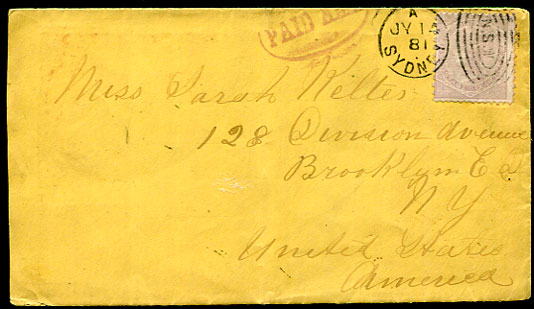 PAID ALL
A
JY 14
81
SYDNEY
N.S.W
Miss Sarah Keller
128 Division Avenue
Brooklyn E D
NY
United States
America